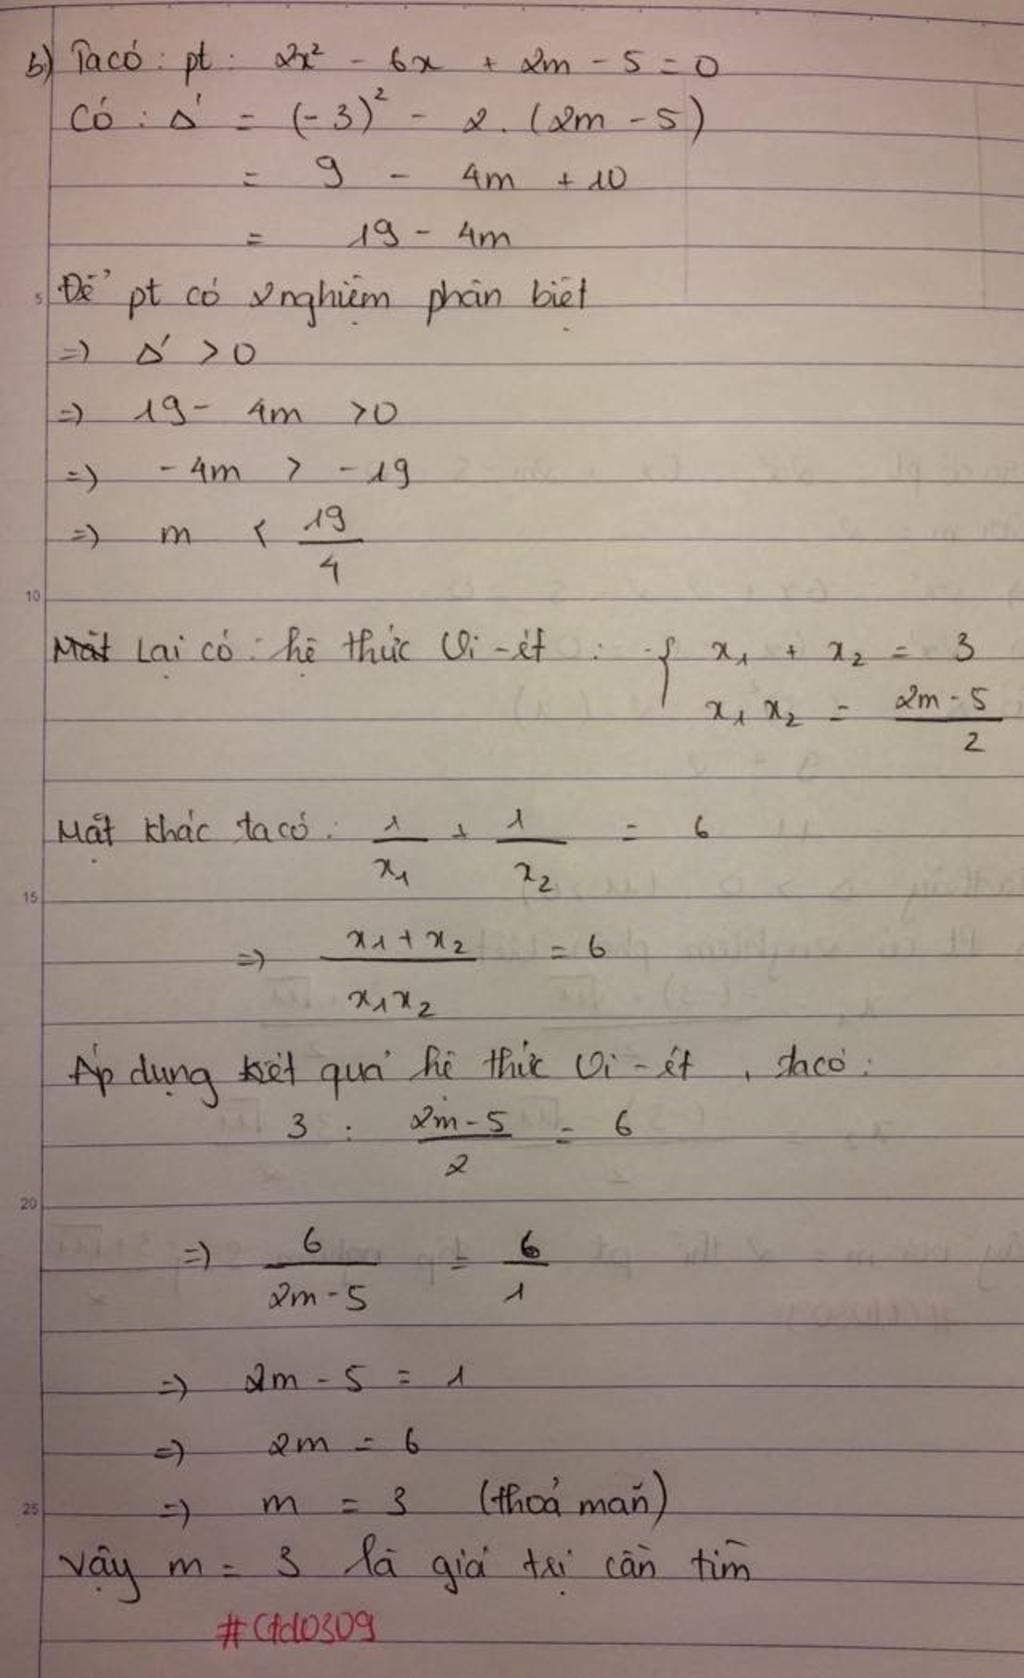 b) Ta có : pt : 2x² - 6x + 2m - 5 = 0
Có : Δ' = (-3)² - 2. (2m - 5)
= 9 - 4m + 10
= 19 - 4m
5 Để pt có 2 nghiệm phân biệt
=) Δ' > 0
=) 19 - 4m > 0
=) - 4m > - 19
=) m < 19/4
10
Mặt Lại có : hệ thức Vi-ét : { x₁ + x₂ = 3
x₁ x₂ = (2m - 5)/2
Mặt khác ta có : 1/x₁ + 1/x₂ = 6
15
=) (x₁ + x₂)/(x₁x₂) = 6
Áp dụng kết quả hệ thức Vi-ét , ta có :
3 : (2m - 5)/2 = 6
20
=) 6/(2m - 5) = 6/1
=) 2m - 5 = 1
=) 2m = 6
25 =) m = 3 (thoả mãn)
Vậy m = 3 là giá trị cần tìm